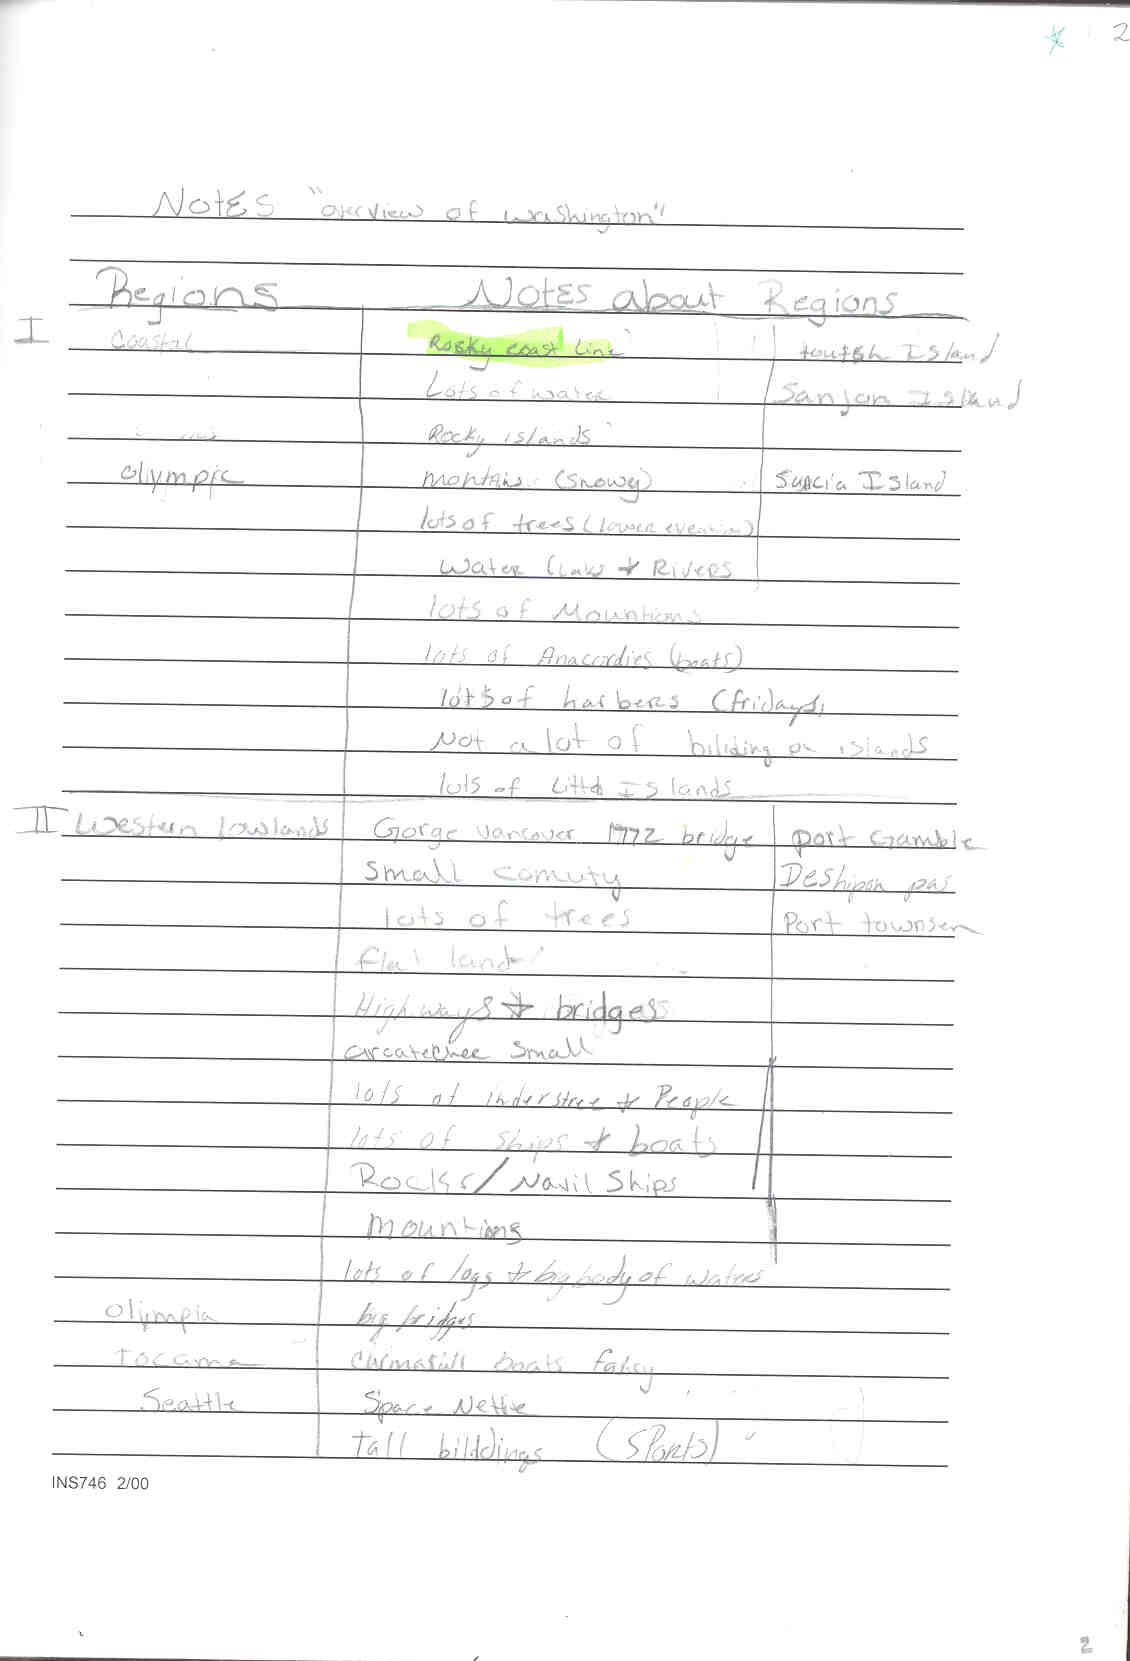 2
Notes "overview of Washington"
Regions Notes about Regions
I Coastal Rocky coast line Island
Lots of water San Jon Island
Rocky islands
Olympic (Snowy) Sucia Island
lots of trees (lower
water + Rivers
lots of Mountions
lots of (boats)
lots of harbers (fridays)
Not a lot of on islands
lots of Islands
II Western lowlands Gorge Vancover 1772 bridge port Gamble
Small comuty Deshipon pas
lots of trees Port townsen
flat land
Highways + bridges
small
lots of inderstree + People
lots of ships + boats
Rocks/Navil Ships
mountions
lots of logs + big body of waters
Olympia big bridges
Tocama boats
Seattle Space Nettle
tall bilddings (Sports)
INS746 2/00
2